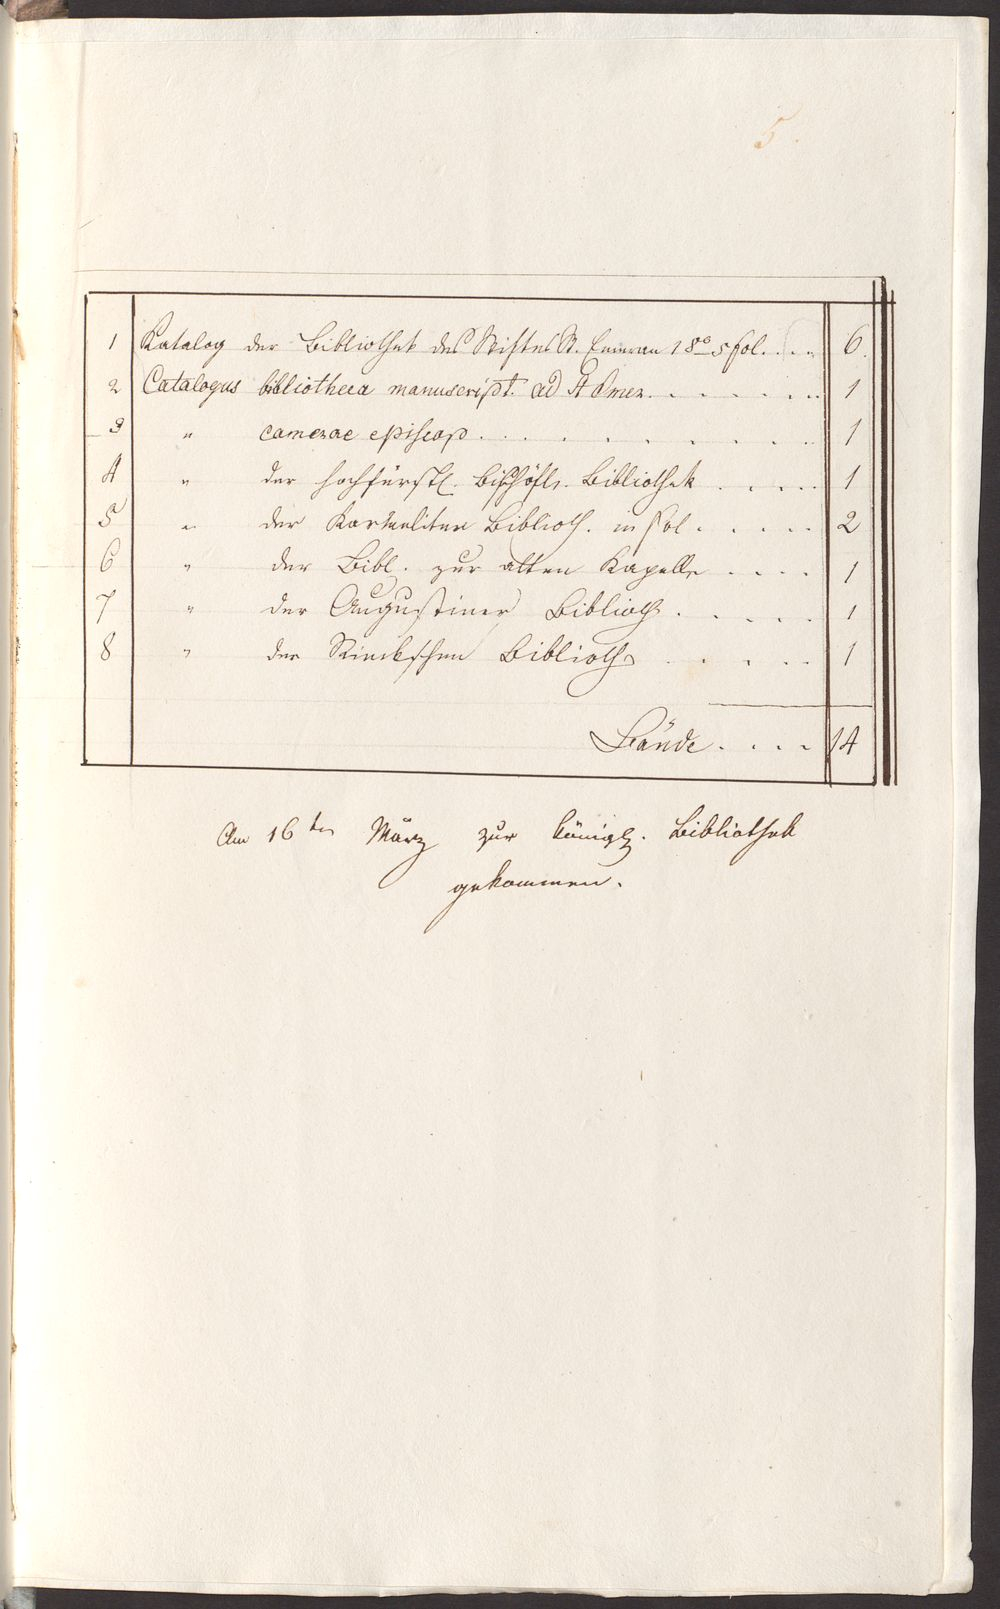 5.
1 Katalog der Bibliothek des Stiftes St. Emeran 1 8º 5 fol. . . . 6.
2 Catalogus bibliotheca manuscript. ad St Emer. . . . . . . . 1
3 " camerae episcop. . . . . . . . . . 1
4 " der hochfürstl. bischöfl. Bibliothek . . . . . 1
5 " der Karmeliten Biblioth. in fol . . . . . 2
6 " der Bibl. zur alten Kapelle . . . . 1
7 " der Augustiner Biblioth. . . . . . 1
8 " der Biblioth . . . . . 1
Bände . . . . 14
Am 16ten März zur königl. Bibliothek
gekommen.